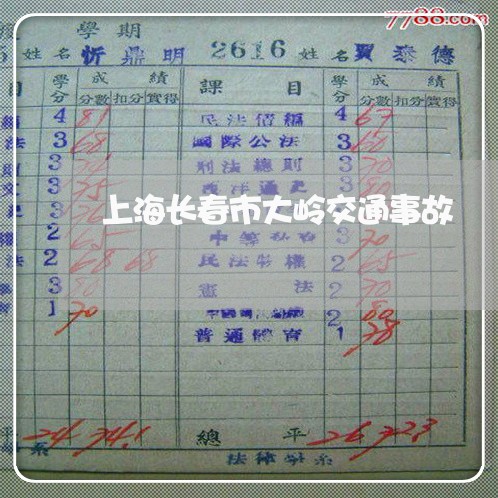 7788.com
度 學期
5 姓名 忻鼎明 2616 姓名 賈泰德
目 學分 成績 課目 學分 成績
分數 扣分 實得 分數 扣分 實得
4 81 民法債編 4 67
法 3 68 國際公法 3 60
則 3 刑法總則 3 70
文 3 75 西洋通史 3 80
上海长春市大岭交通事故
權 2 65 3 70
法 2 68 68 民法物權 2 65
3 80 憲法 2 70
育 1 70 2 80
普通體育 1 78
平 24 74.1 總平 26 72.3
系 法律學系